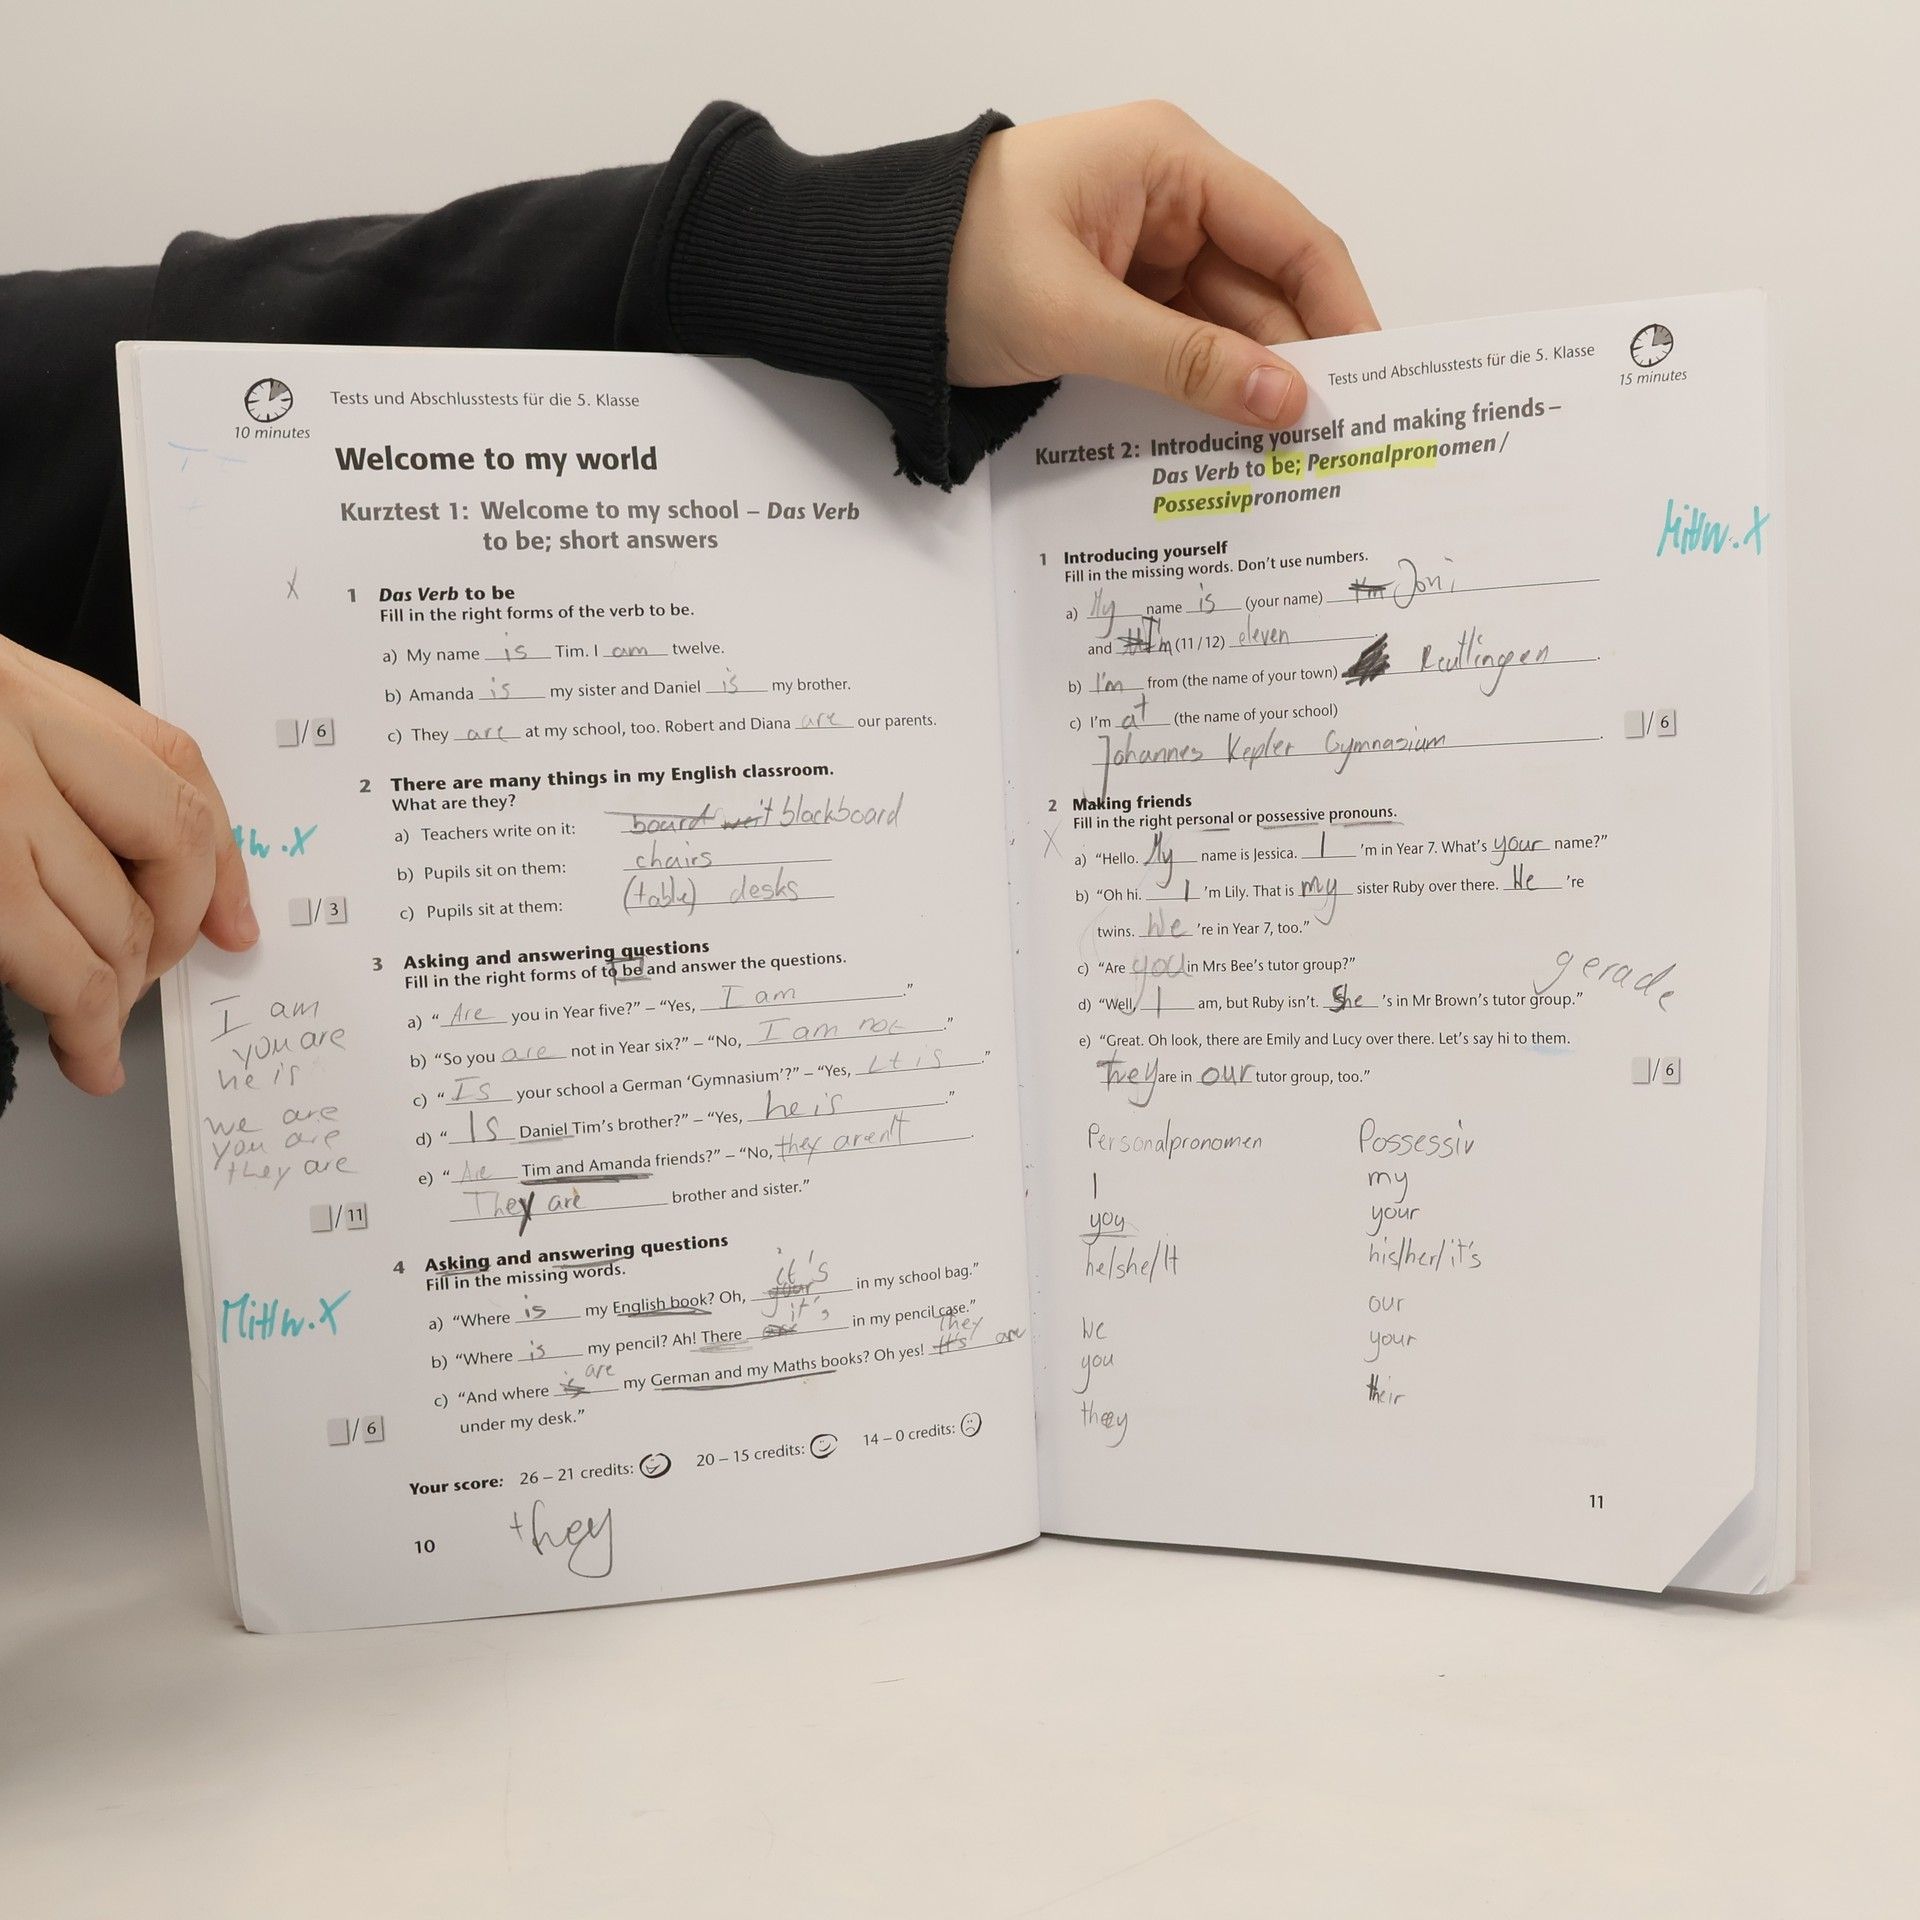 Tests und Abschlusstests für die 5. Klasse
10 minutes
Welcome to my world
Kurztest 1: Welcome to my school – Das Verb
to be; short answers
X
1 Das Verb to be
Fill in the right forms of the verb to be.
a) My name is Tim. I am twelve.
b) Amanda is my sister and Daniel is my brother.
c) They are at my school, too. Robert and Diana are our parents.
/ 6
2 There are many things in my English classroom.
What are they?
a) Teachers write on it: board blackboard
b) Pupils sit on them: chairs
c) Pupils sit at them: (table) desks
/ 3
3 Asking and answering questions
Fill in the right forms of to be and answer the questions.
a) “Are you in Year five?” – “Yes, I am.”
b) “So you are not in Year six?” – “No, I am not.”
c) “Is your school a German ‘Gymnasium’?” – “Yes, it is.”
d) “Is Daniel Tim’s brother?” – “Yes, he is.”
e) “Are Tim and Amanda friends?” – “No, they aren't.
They are brother and sister.”
I am
you are
he is
we are
you are
they are
/ 11
4 Asking and answering questions
Fill in the missing words.
Mittw.X
a) “Where is my English book? Oh, it's in my school bag.”
b) “Where is my pencil? Ah! There it's in my pencil case.”
c) “And where is are my German and my Maths books? Oh yes! It's they are
under my desk.”
/ 6
Your score: 26 – 21 credits: 20 – 15 credits: 14 – 0 credits:
10
they
Tests und Abschlusstests für die 5. Klasse
15 minutes
Kurztest 2: Introducing yourself and making friends –
Das Verb to be; Personalpronomen /
Possessivpronomen
Mittw.X
1 Introducing yourself
Fill in the missing words. Don’t use numbers.
a) My name is (your name) I'm Joni
and I'm (11 / 12) eleven.
b) I'm from (the name of your town) Reutlingen.
c) I’m at (the name of your school)
Johannes Kepler Gymnasium.
/ 6
2 Making friends
Fill in the right personal or possessive pronouns.
X
a) “Hello. My name is Jessica. I ’m in Year 7. What’s your name?”
b) “Oh hi. I ’m Lily. That is my sister Ruby over there. We ’re
twins. We ’re in Year 7, too.”
c) “Are you in Mrs Bee’s tutor group?”
d) “Well, I am, but Ruby isn’t. She ’s in Mr Brown’s tutor group.”
gerade
e) “Great. Oh look, there are Emily and Lucy over there. Let’s say hi to them.
They are in our tutor group, too.”
/ 6
Personalpronomen Possessiv
I my
you your
he/she/It his/her/it's
We our
you your
they their
11